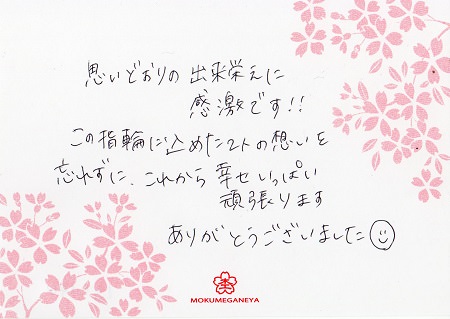 思いどおりの出来栄えに
感激です!!
この指輪に込めた2人の想いを
忘れずに、これから幸せいっぱい
頑張ります
ありがとうございました
MOKUMEGANEYA